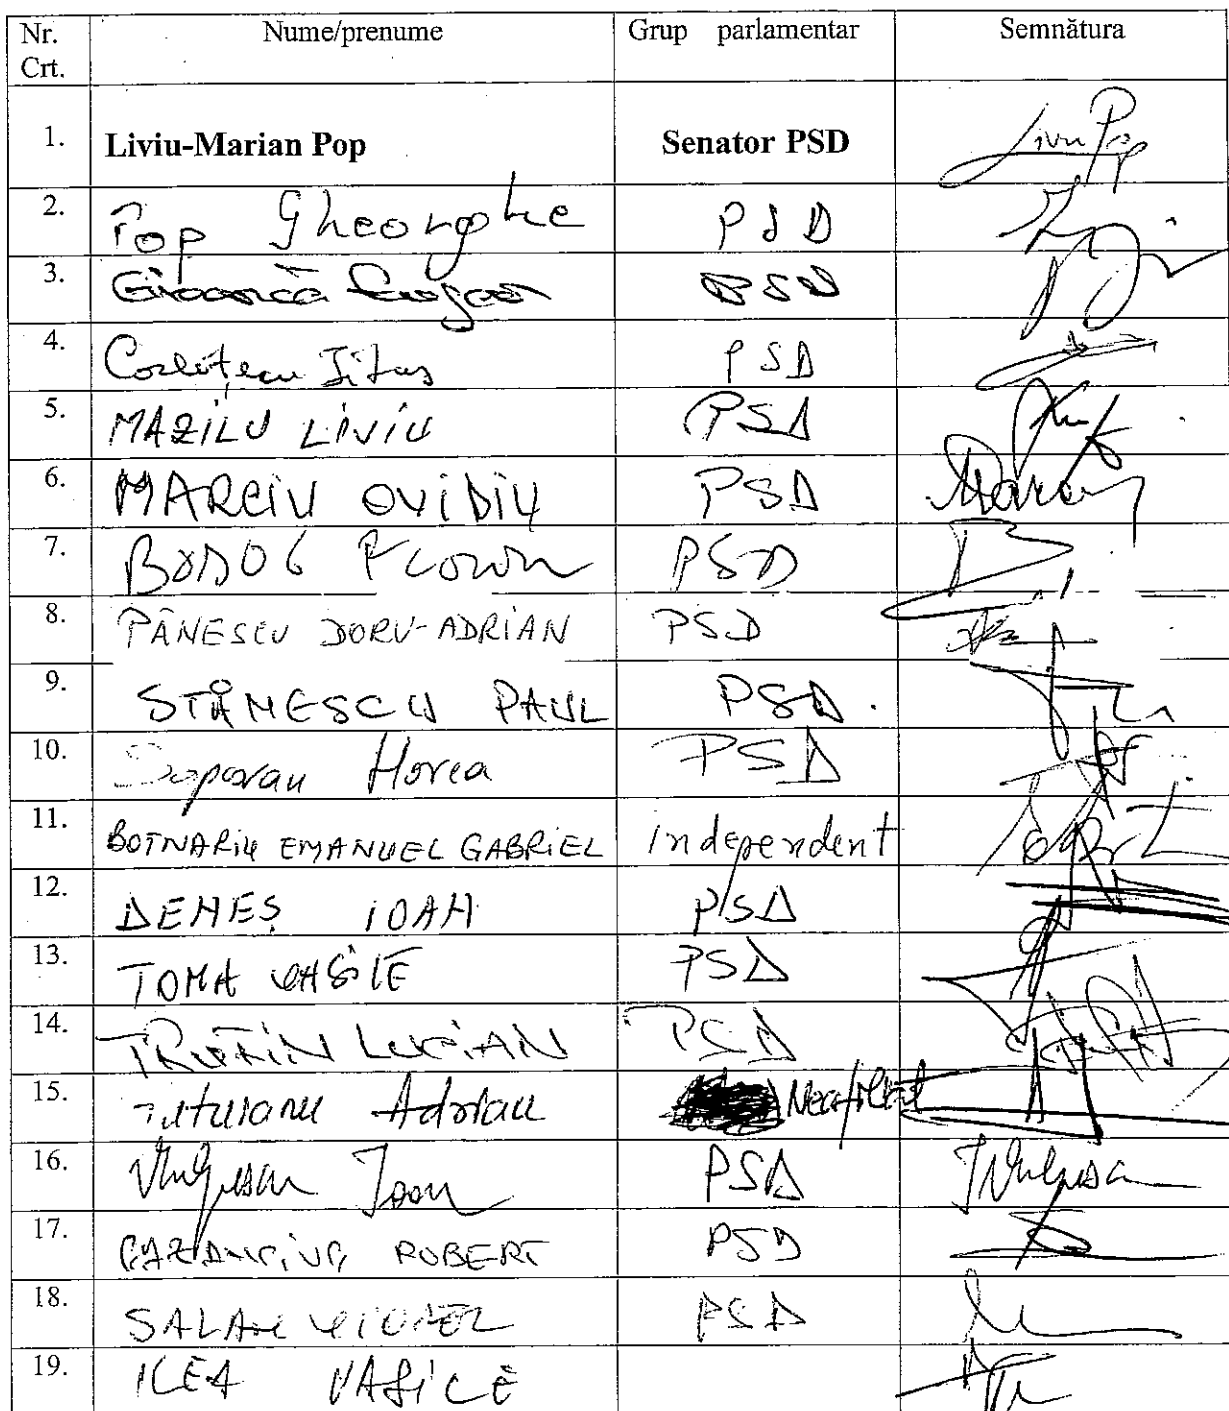 Nr. Crt. Nume/prenume Grup parlamentar Semnătura
1. Liviu-Marian Pop Senator PSD Liviu Pop
2. Pop Gheorghe PSD
3. PSD
4. Corlățean Titus PSD
5. MAZILU LIVIU PSD
6. MARCIU OVIDIU PSD Marciu
7. BODOG Florian PSD
8. PĂNESCU DORU-ADRIAN PSD
9. STĂNESCU PAUL PSD
10. Soporan Horea PSD
11. BOTNARIU EMANUEL GABRIEL independent
12. DENEȘ IOAN PSD
13. TOMA VASILE PSD
14. TRUFIN LUCIAN PSD
15. Țuțuianu Adrian Neafiliat
16. Vulpescu Ioan PSD IVulpescu
17. CAZANCIUC ROBERT PSD
18. SALAN VIOREL PSD
19. ILEA VASILE